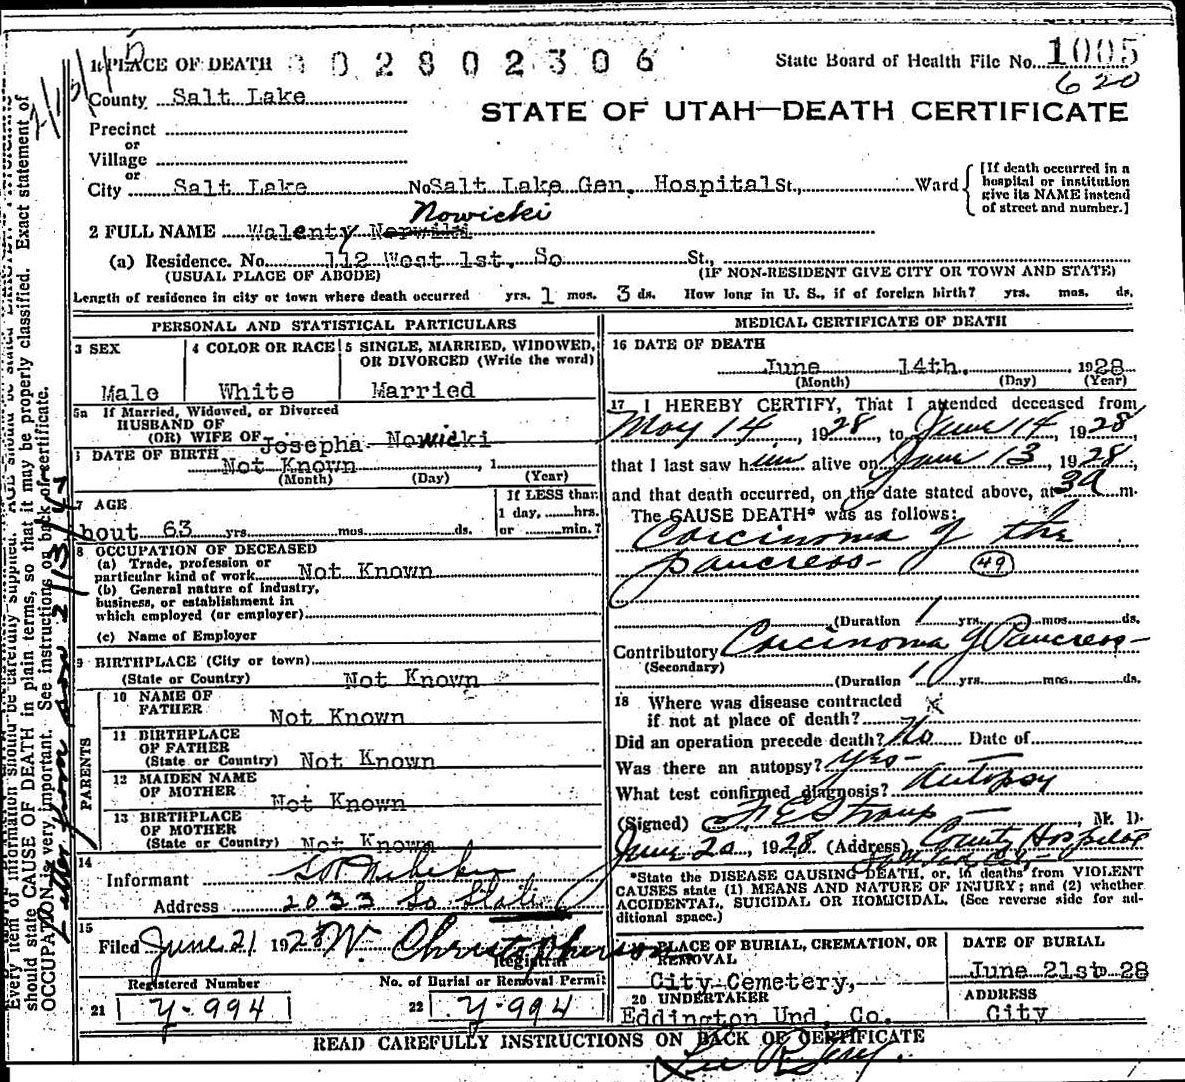 1 PLACE OF DEATH 002802306 State Board of Health File No. 1005
620
County Salt Lake
STATE OF UTAH—DEATH CERTIFICATE
Precinct
or
Village
or
City Salt Lake No Salt Lake Gen. Hospital St., Ward { [If death occurred in a hospital or institution give its NAME instead of street and number.]
Nowicki
2 FULL NAME Walenty Nerwiki
(a) Residence. No. 112 West 1st. So St.,
(USUAL PLACE OF ABODE) (IF NON-RESIDENT GIVE CITY OR TOWN AND STATE)
Length of residence in city or town where death occurred yrs. 1 mos. 3 ds. How long in U. S., if of foreign birth? yrs. mos. ds.
PERSONAL AND STATISTICAL PARTICULARS
3 SEX 4 COLOR OR RACE 5 SINGLE, MARRIED, WIDOWED, OR DIVORCED (Write the word)
Male White Married
5a If Married, Widowed, or Divorced
HUSBAND OF
(OR) WIFE OF Josepha Nowicki
DATE OF BIRTH Not Known , 1
(Month) (Day) (Year)
7 AGE
If LESS than 1 day, hrs. or min.?
bout 63 yrs. mos. ds.
8 OCCUPATION OF DECEASED
(a) Trade, profession or
particular kind of work Not Known
(b) General nature of industry,
business, or establishment in
which employed (or employer)
(c) Name of Employer
9 BIRTHPLACE (City or town)
(State or Country) Not Known
PARENTS
10 NAME OF
FATHER Not Known
11 BIRTHPLACE
OF FATHER
(State or Country) Not Known
12 MAIDEN NAME
OF MOTHER Not Known
13 BIRTHPLACE
OF MOTHER
(State or Country) Not Known
14
Informant
Address 2033 So State
15
Filed June 21 1928 W. Christopherson
Registrar
Registered Number No. of Burial or Removal Permit
21 Y-994 22 Y-994
MEDICAL CERTIFICATE OF DEATH
16 DATE OF DEATH
June 14th. 1928
(Month) (Day) (Year)
17 I HEREBY CERTIFY, That I attended deceased from
May 14, 1928, to June 14, 1928,
that I last saw him alive on June 13, 1928,
and that death occurred, on the date stated above, at 3a m.
The CAUSE DEATH* was as follows:
Carcinoma of the
pancreas- 49
(Duration 1 yrs. mos. ds.
Contributory Carcinoma of Pancreas-
(Secondary)
(Duration 1 yrs. mos. ds.
18 Where was disease contracted
if not at place of death?
Did an operation precede death? No Date of
Was there an autopsy? Yes-
What test confirmed diagnosis? Autopsy
(Signed) F E Straup M. D.
June 20, 1928 (Address) County Hospital
Salt Lake City-
*State the DISEASE CAUSING DEATH, or, in deaths from VIOLENT
CAUSES state (1) MEANS AND NATURE OF INJURY; and (2) whether
ACCIDENTAL, SUICIDAL OR HOMICIDAL. (See reverse side for ad-
ditional space.)
PLACE OF BURIAL, CREMATION, OR REMOVAL DATE OF BURIAL
City Cemetery, June 21st 28
20 UNDERTAKER ADDRESS
Eddington Und. Co. City
READ CAREFULLY INSTRUCTIONS ON BACK OF CERTIFICATE
should state CAUSE OF DEATH in plain terms, so that it may be properly classified. Exact statement of
OCCUPATION is very important. See instructions on back of certificate.
Letter from son 2/13/47